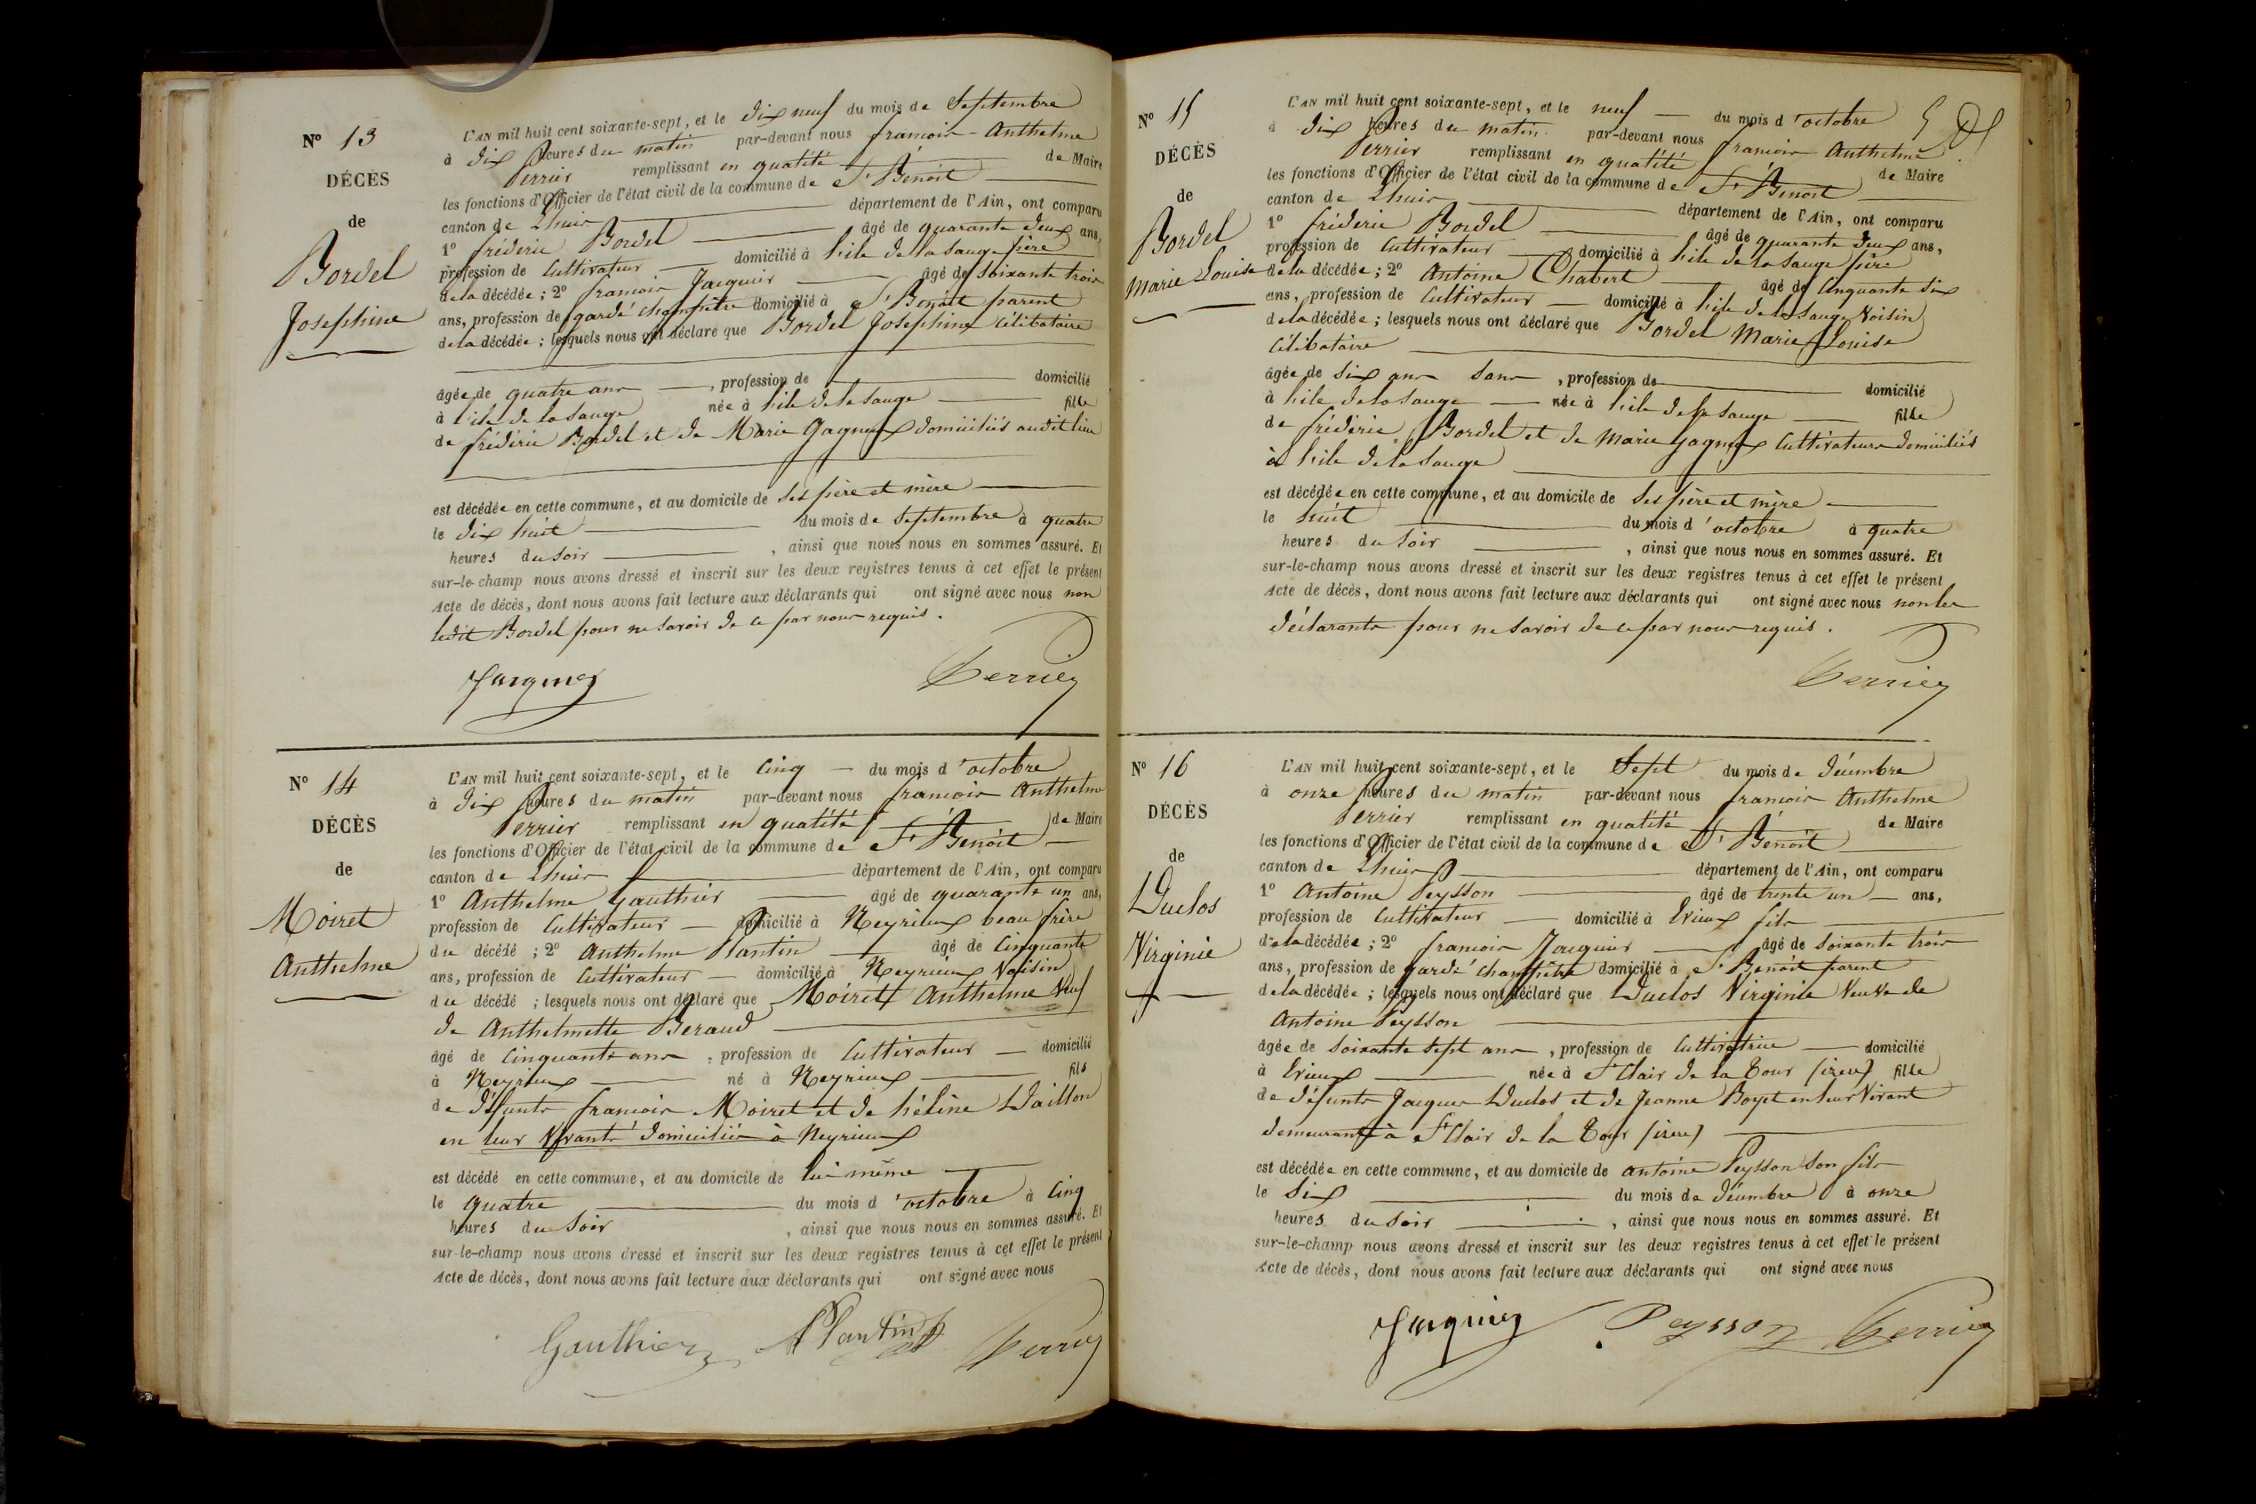 N° 13
DÉCÈS
de
Bordel
Josephine
L'AN mil huit cent soixante-sept, et le dix neuf du mois de Septembre
à dix heures du matin par-devant nous francois-Anthelme
Perrier remplissant en qualité de Maire
les fonctions d'Officier de l'état civil de la commune de St Benoit
canton de Lhuis département de l'Ain, ont comparu
1° fréderic Bordel âgé de quarante deux ans,
profession de Cultivateur domicilié à l'ile de la Sauge père
de la décédée; 2° francois Jacquier âgé de soixante trois
ans, profession de garde champêtre domicilié à St Benoit parent
de la décédée; lesquels nous ont déclaré que Bordel Josephine Célibataire
âgée de quatre ans, profession de domicilié
à l'ile de la Sauge née à l'ile de la Sauge fille
de fréderic Bordel et de Marie Gagneux domiciliés audit lieu
est décédée en cette commune, et au domicile de ses père et mère
le dix huit du mois de Septembre à quatre
heures du soir, ainsi que nous nous en sommes assuré. Et
sur-le-champ nous avons dressé et inscrit sur les deux registres tenus à cet effet le présent
Acte de décès, dont nous avons fait lecture aux déclarants qui ont signé avec nous non
ledit Bordel pour ne savoir de ce par nous requis.
Jacquier Perrier
N° 14
DÉCÈS
de
Moiret
Anthelme
L'AN mil huit cent soixante-sept, et le Cinq du mois d'octobre
à dix heures du matin par-devant nous francois Anthelme
Perrier remplissant en qualité de Maire
les fonctions d'Officier de l'état civil de la commune de St Benoit
canton de Lhuis département de l'Ain, ont comparu
1° Anthelme Gauthier âgé de quarante un ans,
profession de Cultivateur domicilié à Neyrieux beau frère
du décédé; 2° Anthelme Plantin âgé de Cinquante
ans, profession de Cultivateur domicilié à Neyrieux Voisin
du décédé; lesquels nous ont déclaré que Moiret Anthelme Veuf
de Anthelmette Beraud
âgé de Cinquante ans, profession de Cultivateur domicilié
à Neyrieux né à Neyrieux fils
de défunts francois Moiret et de hélène Daillon
en leur Vivants domiciliés à Neyrieux
est décédé en cette commune, et au domicile de lui même
le quatre du mois d'octobre à Cinq
heures du Soir, ainsi que nous nous en sommes assuré. Et
sur-le-champ nous avons dressé et inscrit sur les deux registres tenus à cet effet le présent
Acte de décès, dont nous avons fait lecture aux déclarants qui ont signé avec nous
Gauthier Plantin Perrier
N° 15
DÉCÈS
de
Bordel
Marie Louise
L'AN mil huit cent soixante-sept, et le neuf du mois d'octobre
à dix heures du matin par-devant nous francois Anthelme
Perrier remplissant en qualité de Maire
les fonctions d'Officier de l'état civil de la commune de St Benoit
canton de Lhuis département de l'Ain, ont comparu
1° fréderic Bordel âgé de quarante deux ans,
profession de Cultivateur domicilié à l'ile de la Sauge père
de la décédée; 2° Antoine Chabert âgé de Cinquante six
ans, profession de Cultivateur domicilié à l'ile de la Sauge Voisin
de la décédée; lesquels nous ont déclaré que Bordel Marie Louise
Célibataire
âgée de six ans sans, profession de domicilié
à l'ile de la Sauge née à l'ile de la Sauge fille
de fréderic Bordel et de Marie Gagneux Cultivateurs domiciliés
à l'ile de la Sauge
est décédée en cette commune, et au domicile de ses père et mère
le huit du mois d'octobre à quatre
heures du soir, ainsi que nous nous en sommes assuré. Et
sur-le-champ nous avons dressé et inscrit sur les deux registres tenus à cet effet le présent
Acte de décès, dont nous avons fait lecture aux déclarants qui ont signé avec nous non les
déclarants pour ne savoir de ce par nous requis.
Perrier
N° 16
DÉCÈS
de
Duclos
Virginie
L'AN mil huit cent soixante-sept, et le Sept du mois de décembre
à onze heures du matin par-devant nous francois Anthelme
Perrier remplissant en qualité de Maire
les fonctions d'Officier de l'état civil de la commune de St Benoit
canton de Lhuis département de l'Ain, ont comparu
1° Antoine Peysson âgé de trente un ans,
profession de Cultivateur domicilié à Evieux fils
de la décédée; 2° francois Jacquier âgé de soixante trois
ans, profession de garde champêtre domicilié à St Benoit parent
de la décédée; lesquels nous ont déclaré que Duclos Virginie Veuve de
Antoine Peysson
âgée de soixante sept ans, profession de Cultivatrice domicilié
à Evieux née à St Clair de la Tour (isère) fille
de défunts Jacques Duclos et de Jeanne en leur Vivant
demeurants à St Clair de la Tour (isère)
est décédée en cette commune, et au domicile de Antoine Peysson son fils
le Six du mois de décembre à onze
heures du soir, ainsi que nous nous en sommes assuré. Et
sur-le-champ nous avons dressé et inscrit sur les deux registres tenus à cet effet le présent
Acte de décès, dont nous avons fait lecture aux déclarants qui ont signé avec nous
Jacquier Peysson Perrier